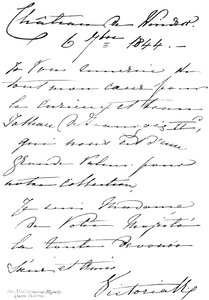 Château de Windsor
6 8bre 1844.—
Je Vous remercie de
tout mon cœur pour
le curieux et
Tableau de François II,
qui nous est d'un
grand prix pour
notre Collection
Je suis Madame
de Votre Majesté
la toute dévouée
Sœur et Amie
Victoria R
Her Most Gracious Majesty
Queen Victoria.